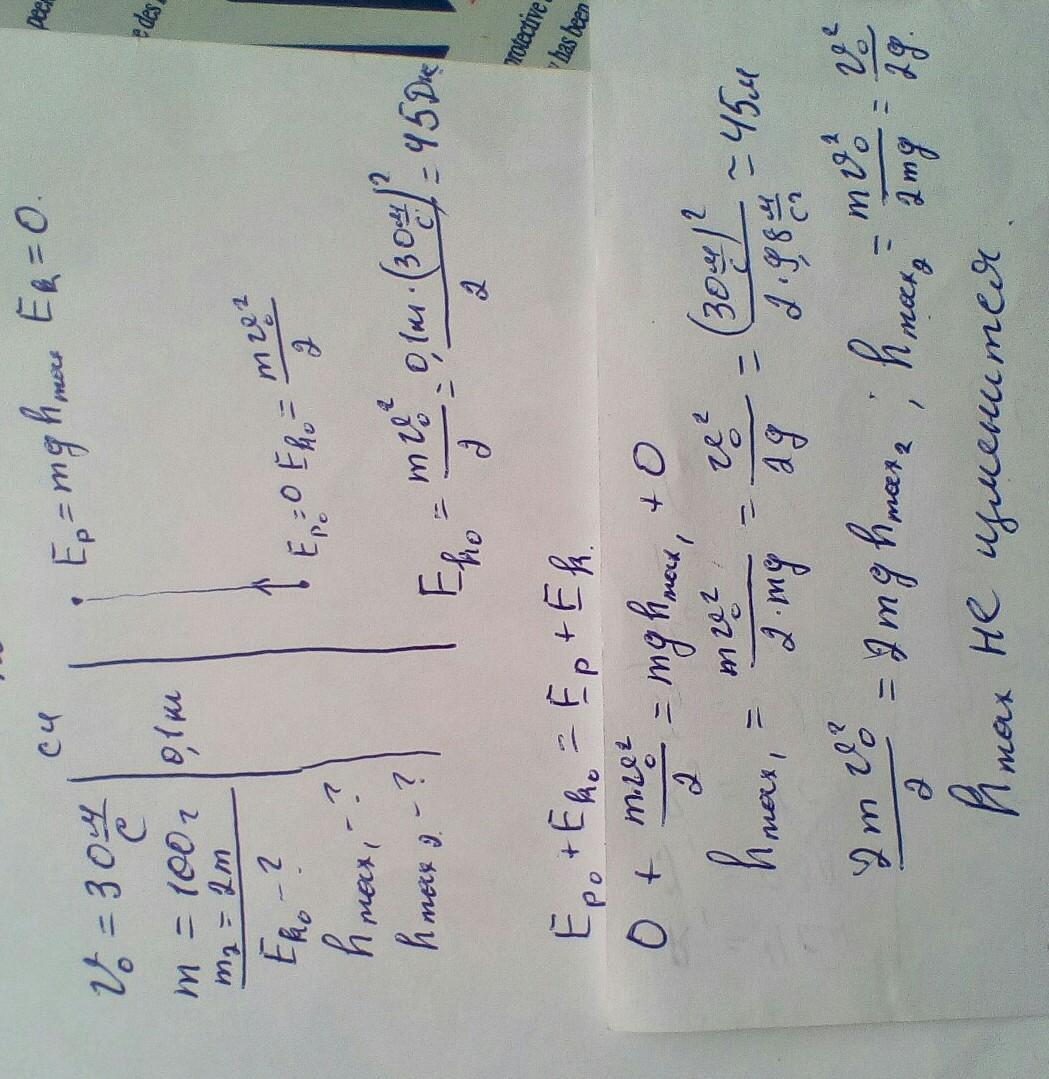 СИ
v₀ = 30 м/с
m = 100 г
0,1 кг
m₂ = 2m
Eк₀ - ?
hmax₁ - ?
hmax₂ - ?
Ep = mghmax Ek = 0.
Ep₀ = 0 Ek₀ = mv₀²/2
Ek₀ = mv₀²/2 = 0,1кг·(30 м/с)²/2 = 45Дж
Ep₀ + Ek₀ = Ep + Ek.
0 + mv₀²/2 = mghmax₁ + 0
hmax₁ = mv₀²/2·mg = v₀²/2g = (30 м/с)²/2·9,8 м/с² ≃ 45м
2mv₀²/2 = 2mghmax₂ ; hmax₂ = mv₀²/2mg = v₀²/2g.
hmax не изменится.
rotective
has been